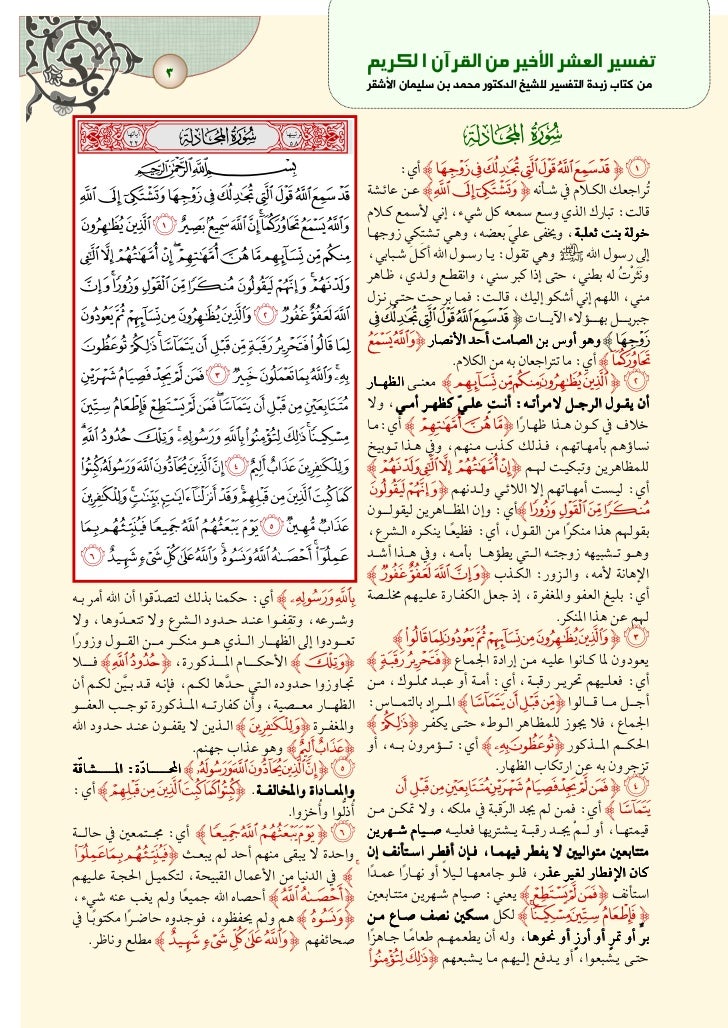 ٣
تفسير العشر الأخير من القرآن الكريم
من كتاب زبدة التفسير للشيخ الدكتور محمد بن سليمان الأشقر
سُورَةُ المُجَادلة
١ ﴿قَدْ سَمِعَ اللَّهُ قَوْلَ الَّتِي تُجَادِلُكَ فِي زَوْجِهَا﴾ أي:
تُراجعك الكلام في شأنه ﴿وَتَشْتَكِي إِلَى اللَّهِ﴾ عن عائشة
قالت: تبارك الذي وسع سمعه كل شيء، إني لأسمع كلام
خولة بنت ثعلبة، ويخفى عليّ بعضه، وهي تشتكي زوجها
إلى رسول الله ﷺ وهي تقول: يا رسول الله أكَلَ شبابي،
ونَثَرْتُ له بطني، حتى إذا كبر سني، وانقطع ولدي، ظاهر
مني، اللهم إني أشكو إليك، قالت: فما برحت حتى نزل
جبريل بهؤلاء الآيات ﴿قَدْ سَمِعَ اللَّهُ قَوْلَ الَّتِي تُجَادِلُكَ فِي
زَوْجِهَا﴾ وهو أوس بن الصامت أحد الأنصار ﴿وَاللَّهُ يَسْمَعُ
تَحَاوُرَكُمَا﴾ أي: ما تتراجعان به من الكلام.
٢ ﴿الَّذِينَ يُظَاهِرُونَ مِنكُم مِّن نِّسَائِهِم﴾ معنى الظهار
أن يقول الرجل لامرأته: أنت عليّ كظهر أمي، ولا
خلاف في كون هذا ظهارًا ﴿مَّا هُنَّ أُمَّهَاتِهِمْ﴾ أي: ما
نساؤهم بأمهاتهم، فذلك كذب منهم، وفي هذا توبيخ
للمظاهرين وتبكيت لهم ﴿إِنْ أُمَّهَاتُهُمْ إِلَّا اللَّائِي وَلَدْنَهُمْ﴾
أي: ليست أمهاتهم إلا اللائي ولدنهم ﴿وَإِنَّهُمْ لَيَقُولُونَ
مُنكَرًا مِّنَ الْقَوْلِ وَزُورًا﴾ أي: وإن المظاهرين ليقولون
بقولهم هذا منكرًا من القول، أي: فظيعًا ينكره الشرع،
وهو تشبيهه زوجته التي يطؤها بأمه، وفي هذا أشد
الإهانة لأمه، والزور: الكذب ﴿وَإِنَّ اللَّهَ لَعَفُوٌّ غَفُورٌ﴾
أي: بليغ العفو والمغفرة، إذ جعل الكفارة عليهم مخلصة
لهم عن هذا المنكر.
٣ ﴿وَالَّذِينَ يُظَاهِرُونَ مِن نِّسَائِهِمْ ثُمَّ يَعُودُونَ لِمَا قَالُوا﴾
يعودون لما كانوا عليه من إرادة الجماع ﴿فَتَحْرِيرُ رَقَبَةٍ﴾
أي: فعليهم تحرير رقبة، أي: أمة أو عبد مملوك، من
أجل ما قالوا ﴿مِّن قَبْلِ أَن يَتَمَاسَّا﴾ المراد بالتماس:
الجماع، فلا يجوز للمظاهر الوطء حتى يكفر ﴿ذَٰلِكُمْ﴾
الحكم المذكور ﴿تُوعَظُونَ بِهِ﴾ أي: تؤمرون به، أو
تزجرون به عن ارتكاب الظهار.
٤ ﴿فَمَن لَّمْ يَجِدْ فَصِيَامُ شَهْرَيْنِ مُتَتَابِعَيْنِ مِن قَبْلِ أَن
يَتَمَاسَّا﴾ أي: فمن لم يجد الرقبة في ملكه، ولا تمكن من
قيمتها، أو لم يجد رقبة يشتريها فعليه صيام شهرين
متتابعين متواليين لا يفطر فيهما، فإن أفطر استأنف إن
كان الإفطار لغير عذر، فلو جامعها ليلًا أو نهارًا عمدًا
استأنف ﴿فَمَن لَّمْ يَسْتَطِعْ﴾ يعني: صيام شهرين متتابعين
﴿فَإِطْعَامُ سِتِّينَ مِسْكِينًا﴾ لكل مسكين نصف صاع من
برٍّ أو تمرٍ أو أرزٍ أو نحوها، وله أن يطعمهم طعامًا جاهزًا
حتى يشبعوا، أو يدفع إليهم ما يشبعهم ﴿ذَٰلِكَ لِتُؤْمِنُوا
ترتيبها ٥٨ سُورَةُ المُجَادلة آياتها ٢٢
بِسْمِ اللَّهِ الرَّحْمَٰنِ الرَّحِيمِ
قَدْ سَمِعَ اللَّهُ قَوْلَ الَّتِي تُجَادِلُكَ فِي زَوْجِهَا وَتَشْتَكِي إِلَى اللَّهِ
وَاللَّهُ يَسْمَعُ تَحَاوُرَكُمَا إِنَّ اللَّهَ سَمِيعٌ بَصِيرٌ ١ الَّذِينَ يُظَاهِرُونَ
مِنكُم مِّن نِّسَائِهِم مَّا هُنَّ أُمَّهَاتِهِمْ إِنْ أُمَّهَاتُهُمْ إِلَّا اللَّائِي
وَلَدْنَهُمْ وَإِنَّهُمْ لَيَقُولُونَ مُنكَرًا مِّنَ الْقَوْلِ وَزُورًا وَإِنَّ
اللَّهَ لَعَفُوٌّ غَفُورٌ ٢ وَالَّذِينَ يُظَاهِرُونَ مِن نِّسَائِهِمْ ثُمَّ يَعُودُونَ
لِمَا قَالُوا فَتَحْرِيرُ رَقَبَةٍ مِّن قَبْلِ أَن يَتَمَاسَّا ذَٰلِكُمْ تُوعَظُونَ
بِهِ وَاللَّهُ بِمَا تَعْمَلُونَ خَبِيرٌ ٣ فَمَن لَّمْ يَجِدْ فَصِيَامُ شَهْرَيْنِ
مُتَتَابِعَيْنِ مِن قَبْلِ أَن يَتَمَاسَّا فَمَن لَّمْ يَسْتَطِعْ فَإِطْعَامُ سِتِّينَ
مِسْكِينًا ذَٰلِكَ لِتُؤْمِنُوا بِاللَّهِ وَرَسُولِهِ وَتِلْكَ حُدُودُ اللَّهِ
وَلِلْكَافِرِينَ عَذَابٌ أَلِيمٌ ٤ إِنَّ الَّذِينَ يُحَادُّونَ اللَّهَ وَرَسُولَهُ كُبِتُوا
كَمَا كُبِتَ الَّذِينَ مِن قَبْلِهِمْ وَقَدْ أَنزَلْنَا آيَاتٍ بَيِّنَاتٍ وَلِلْكَافِرِينَ
عَذَابٌ مُّهِينٌ ٥ يَوْمَ يَبْعَثُهُمُ اللَّهُ جَمِيعًا فَيُنَبِّئُهُم بِمَا
عَمِلُوا أَحْصَاهُ اللَّهُ وَنَسُوهُ وَاللَّهُ عَلَىٰ كُلِّ شَيْءٍ شَهِيدٌ ٦
بِاللَّهِ وَرَسُولِهِ﴾ أي: حكمنا بذلك لتصدّقوا أن الله أمر به
وشرعه، وتقِفوا عند حدود الشرع ولا تتعدّوها، ولا
تعودوا إلى الظهار الذي هو منكر من القول وزورًا
﴿وَتِلْكَ﴾ الأحكام المذكورة، ﴿حُدُودُ اللَّهِ﴾ فلا
تجاوزوا حدوده التي حدَّها لكم، فإنه قد بيَّن لكم أن
الظهار معصية، وأن كفارته المذكورة توجب العفو
والمغفرة ﴿وَلِلْكَافِرِينَ﴾ الذين لا يقفون عند حدود الله
﴿عَذَابٌ أَلِيمٌ﴾ وهو عذاب جهنم.
٥ ﴿إِنَّ الَّذِينَ يُحَادُّونَ اللَّهَ وَرَسُولَهُ﴾ المحادّة: المشاقّة
والمعاداة والمخالفة. ﴿كُبِتُوا كَمَا كُبِتَ الَّذِينَ مِن قَبْلِهِمْ﴾ أي:
أُذلُّوا وأُخزوا.
٦ ﴿يَوْمَ يَبْعَثُهُمُ اللَّهُ جَمِيعًا﴾ أي: مجتمعين في حالة
واحدة لا يبقى منهم أحد لم يبعث ﴿فَيُنَبِّئُهُم بِمَا عَمِلُوا
﴾ في الدنيا من الأعمال القبيحة، لتكميل الحجة عليهم
﴿أَحْصَاهُ اللَّهُ﴾ أحصاه الله جميعًا ولم يغب عنه شيء،
﴿وَنَسُوهُ﴾ هم ولم يحفظوه، فوجدوه حاضرًا مكتوبًا في
صحائفهم ﴿وَاللَّهُ عَلَىٰ كُلِّ شَيْءٍ شَهِيدٌ﴾ مطلع وناظر.